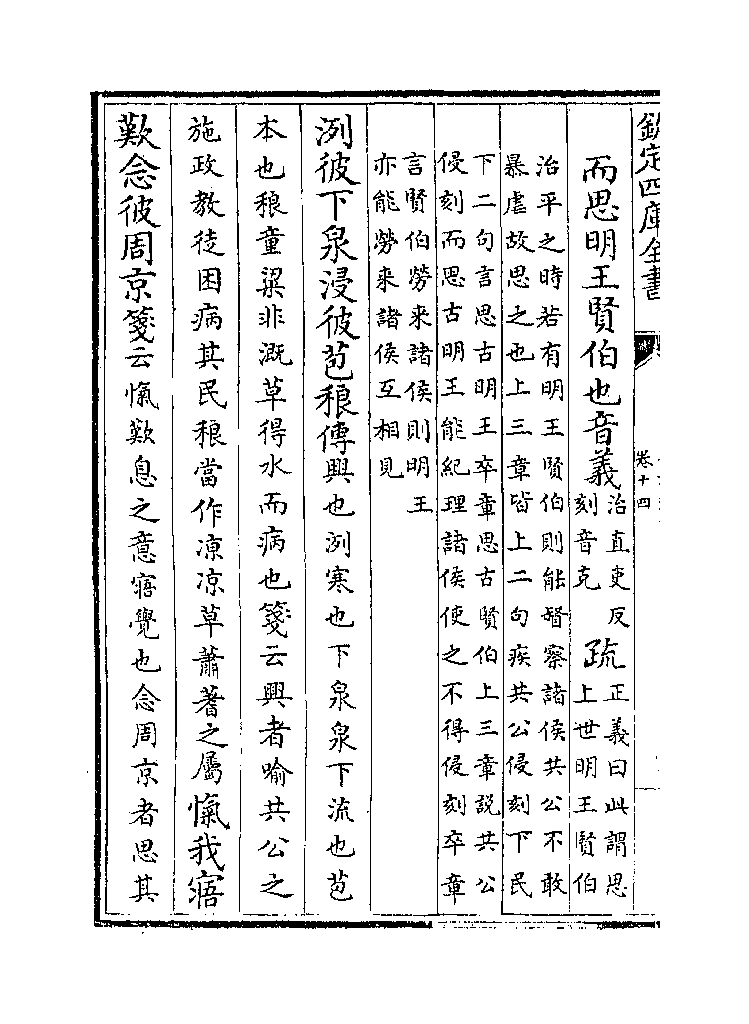 欽定四庫全書
卷十四
而思明王賢伯也音義治直吏反刻音克疏正義曰此謂思上世明王賢伯
治平之時若有明王賢伯則能督察諸侯共公不敢暴虐故思之也上三章皆上二句疾共公侵刻下民
下二句言思古明王卒章思古賢伯上三章說共公侵刻而思古明王能紀理諸侯使之不得侵刻卒章
言賢伯勞來諸侯則明王亦能勞來諸侯互相見
洌彼下泉浸彼苞稂傳興也洌寒也下泉泉下流也苞
本也稂童粱非溉草得水而病也箋云興者喻共公之
施政教徒困病其民稂當作涼涼草蕭蓍之屬愾我寤
歎念彼周京箋云愾歎息之意寤覺也念周京者思其